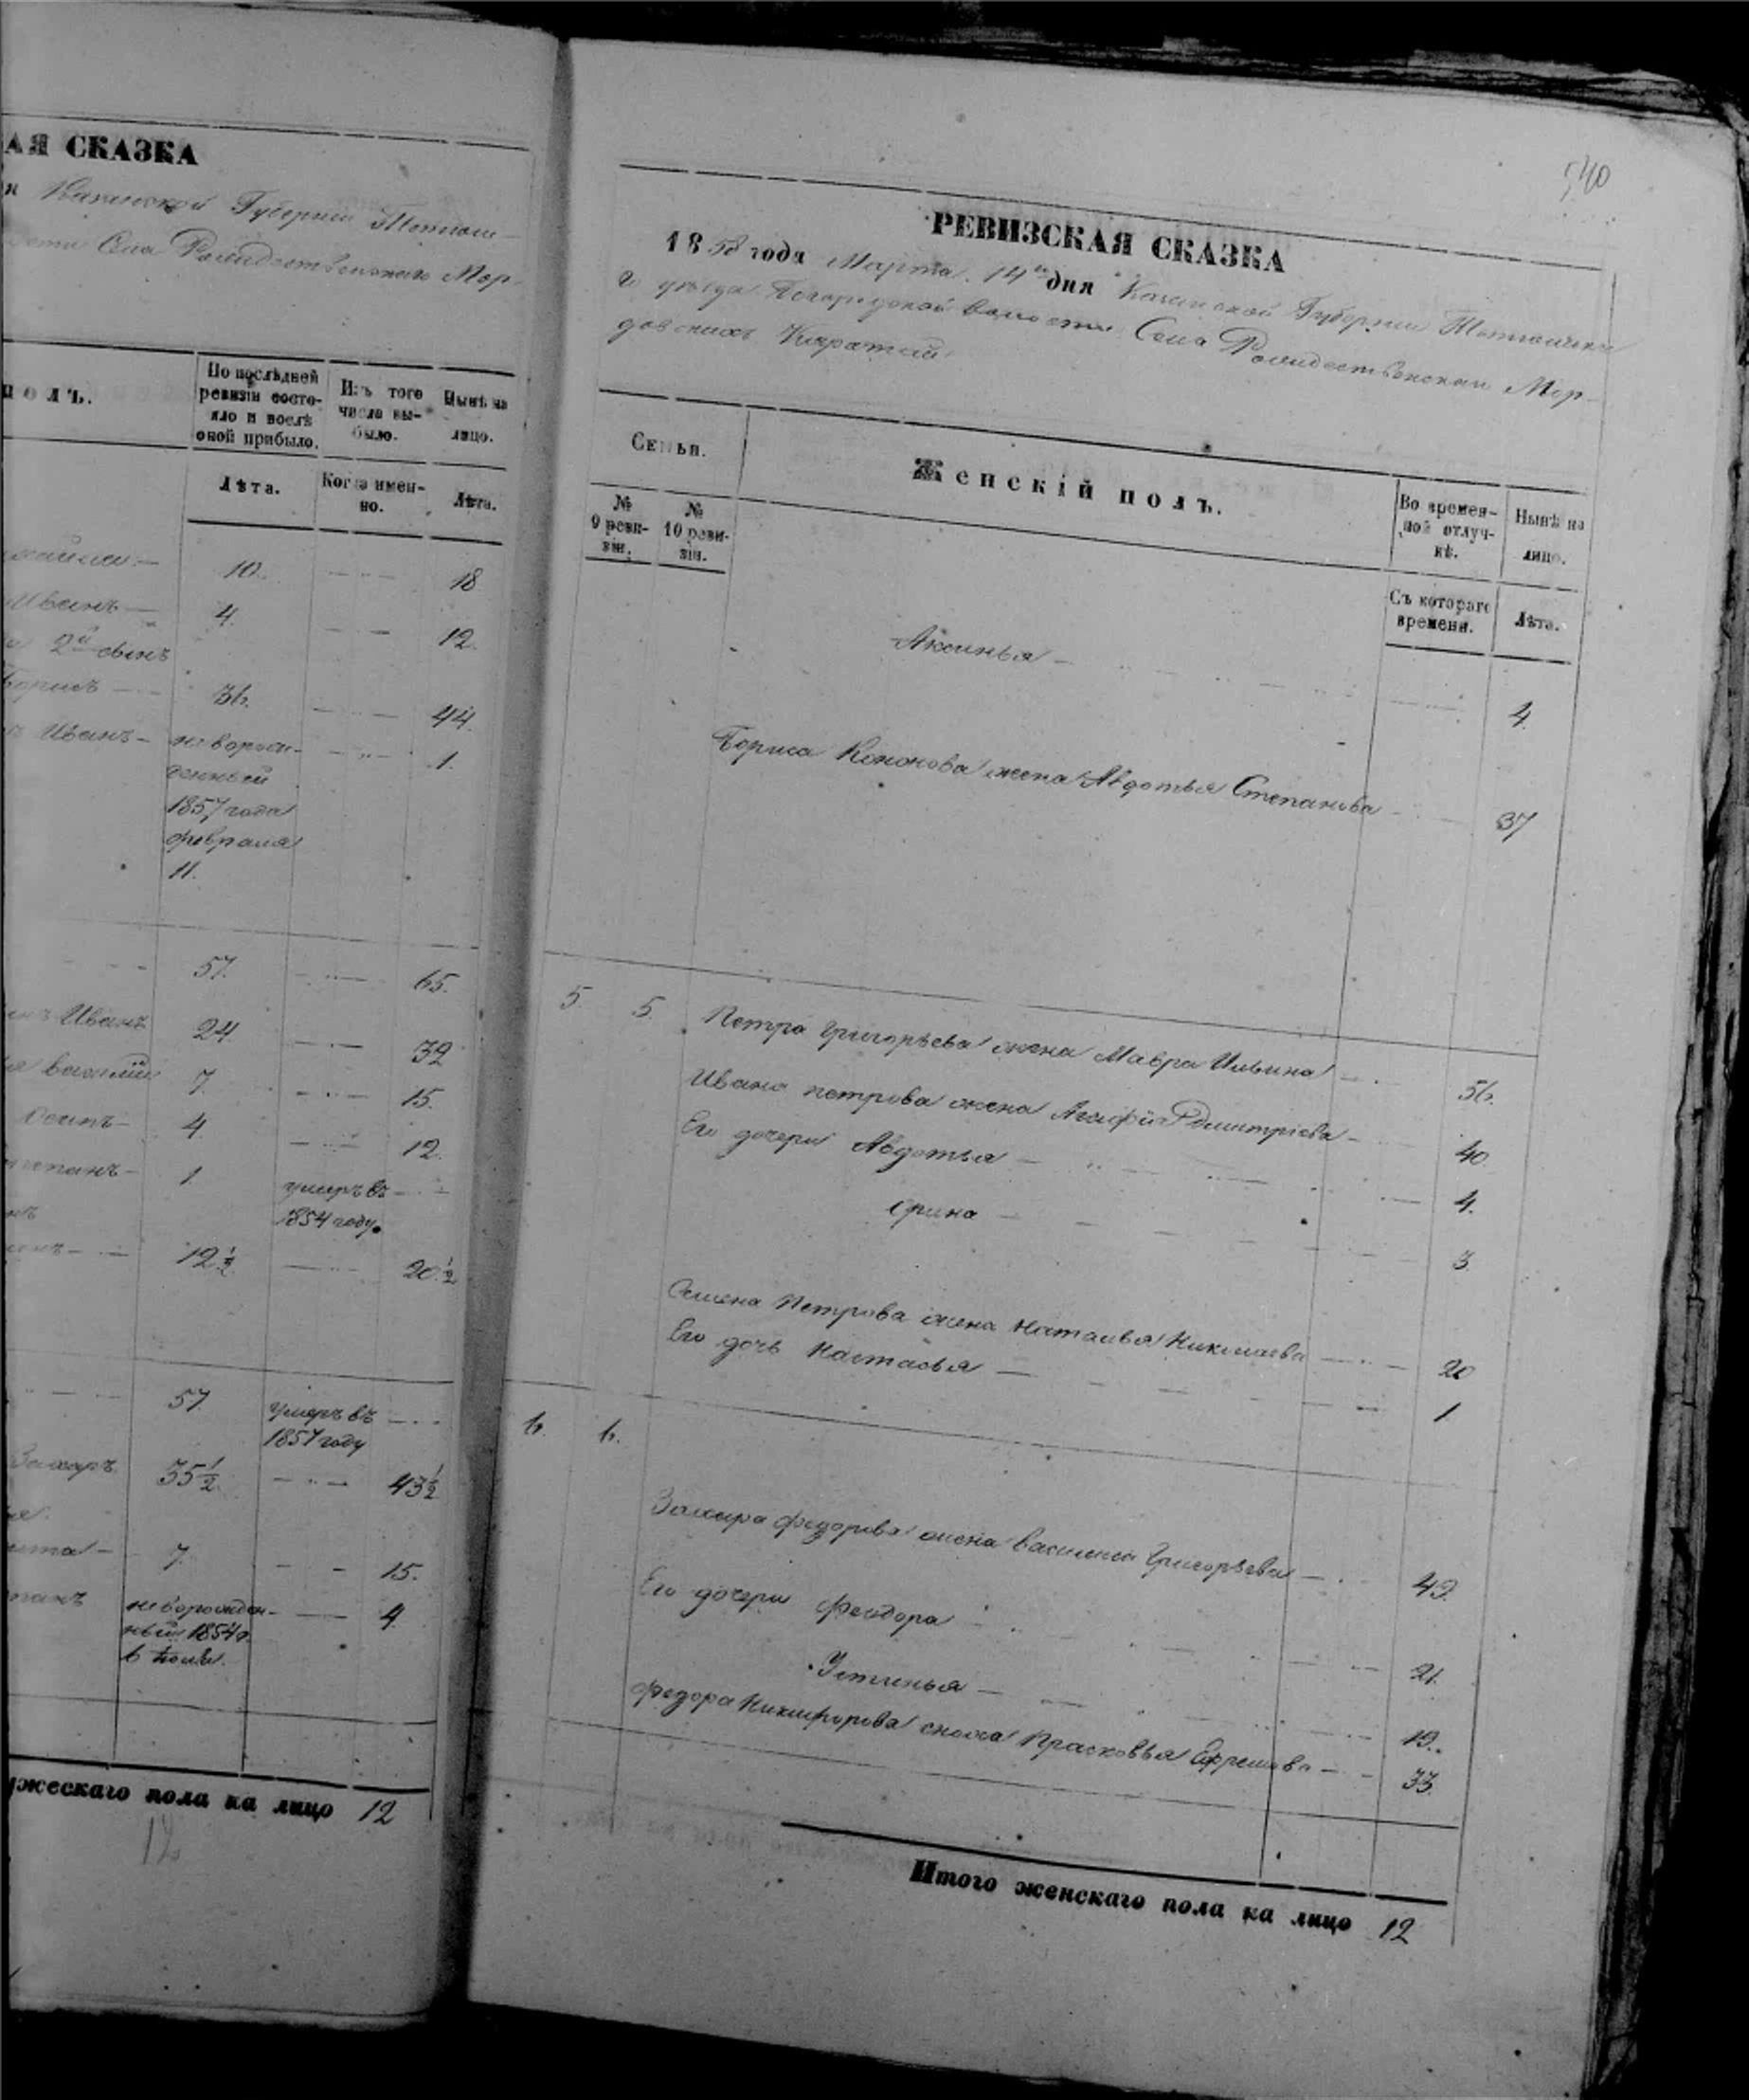 АЯ СКАЗКА
Казанской Губерніи Тетюш-
Села Рождественскаго Мор-
полъ.
По послѣдней ревизіи состояло и послѣ оной прибыло.
Изъ того числа выбыло.
Нынѣ на лицо.
Лѣта.
Когда именно.
Лѣта.
10. 18
Иванъ 4. 12.
2й сынъ
Борисъ 36. 44.
Иванъ новорож- 1.
денный
1857 года
февраля
11.
57. 65.
Иванъ 24 32
василій 7. 15.
Осипъ 4 12.
степанъ 1. умеръ въ
1854 году.
12 ½ 20 ½
57. умеръ въ
1857 году
Захаръ 35 ½ 43 ½
7. 15.
новорожден- 4.
ный 1854 г.
6 Іюля.
ужескаго пола на лицо 12
12
540
РЕВИЗСКАЯ СКАЗКА
1858 года Марта 14го дня Казанской Губерніи Тетюшска
го уѣзда волости Села Рождественскаго Мор-
довскихъ Каратай
Семьи.
Женскій полъ.
Во временной отлучкѣ.
Нынѣ на лицо.
№ 9 ревизіи.
№ 10 ревизіи.
Съ котораго времени.
Лѣта.
Аксинья 4.
Бориса Кононова жена Авдотья Степанова 37
5 5. Петра Григорьева жена Мавра Ильина 56.
Ивана петрова жена Агафія Дмитріева 40.
Его дочери Авдотья 4.
Ирина 3.
Семена Петрова жена Наталья Николаева 20
Его дочь Настасья 1.
6. 6.
Захара федорова жена василиса Григорьева 42.
Его дочери Феодора 21.
Устинья 19.
Федора Никифорова сноха Прасковья Ефремова 33.
Итого женскаго пола на лицо 12